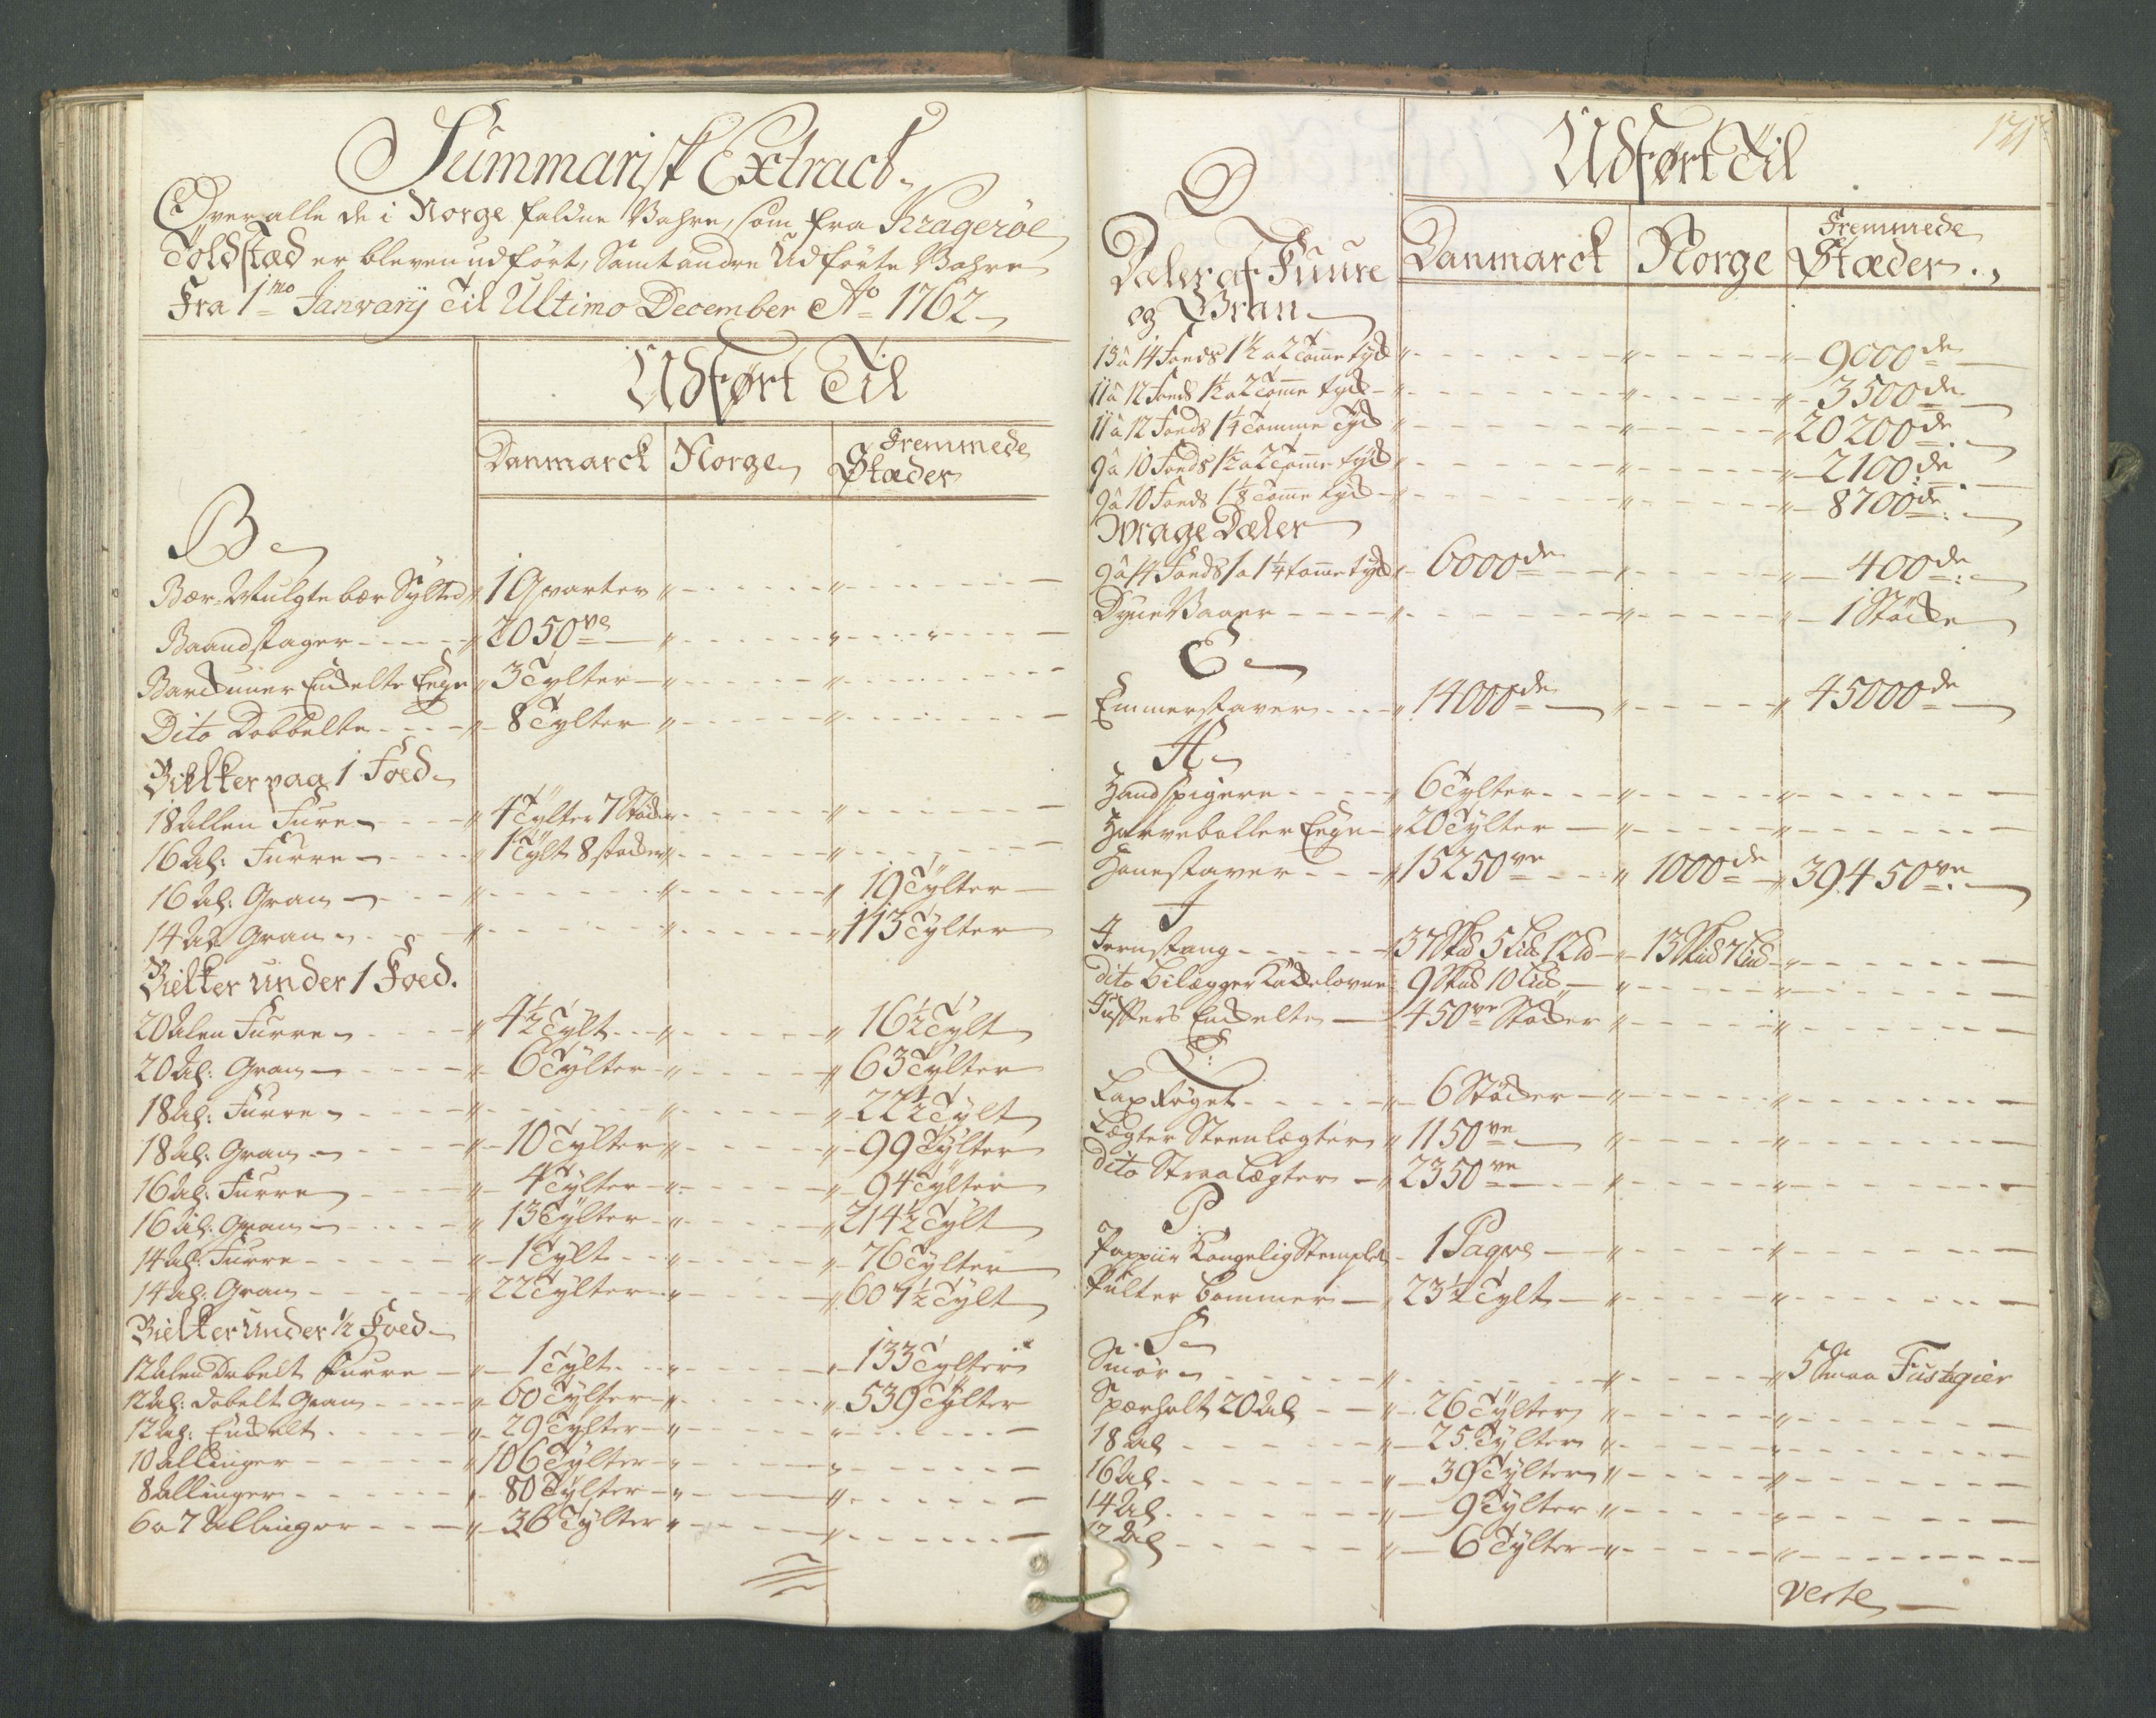 Summarisk Extract
Over alle de i Norge faldne Vahre, som fra Kragerøe
Toldstæd er bleven udført, Samt andre Udførte Vahre
Fra 1mo Janvarij Til Ultimo December Ao 1762
Udført Til
Danmarck Norge Fremmede Stæder
B
Bær Multgebær Sylted " 1 Qvarter " "
Baandstager " 2050ve " "
Bardduner Enckelte Eege " 3 Tylter " "
Dito Dobbelte " 8 Tylter " "
Bielker paa 1 Foed
18 Allen Furre " 4 Tylter 7 Støcker "
16 Al: Furre " 1 Tylt 8 støcker " "
16 Al: Gran " " " 19 Tylter
14 Al: Gran " " " 113 Tylter
Bielker under 1 Foed.
20 Alen Furre " 4½ Tylt " " 16½ Tylt
20 Al: Gran " 6 Tylter " " 63 Tylter
18 Al: Furre " " " 22½ Tylt
18 Al: Gran " 10 Tylter " " 99 Tylter
16 Al: Furre " 4 Tylter " " 94 Tylter
16 Al: Gran " 13 Tylter " " 214½ Tylt
14 Al: Furre " 1 Tylt " " 76 Tylter
14 Al: Gran " 22 Tylter " " 607½ Tylt
Bielker under ½ Foed
12 Alen Dobelt Furre " 1 Tylt " " 133 Tylter
12 Al: Dobelt Gran " 60 Tylter " " 539 Tylter
12 Al: Enckelt " 29 Tylter " "
10 Allinger " 106 Tylter " "
8 Allinger " 80 Tylter " "
6 a 7 Allinger " 36 Tylter " "
121
Udført Til
D
Dæler af Fuure Danmarck Norge Fremmede Stæder
og Gran
13 a 14 Foeds 1½ a 2 Tomme tyck " " " 9000de
11 a 12 Foeds 1½ a 2 Tomme tyck " " " 3500de
11 a 12 Foeds 1¼ Tomme Tyck " " " 20200de
9 a 10 Foeds 1½ a 2 Tomme tyck " " " 2100de
9 a 10 Foeds 1⅛ Tomme tyck " " " 8700de
Wrage Dæler
9 a 14 Foeds 1 a 1¼ tomme tyck " 6000de " " 400de
Dyne Vaaer " " " 1 Støcke
E
Emmerstaver " 14000de " " 45000de
H
Handspigere " 6 Tylter " "
Harveboller Eege " 20 Tylter " "
Hanestaver " 15250ve " 1000de " 39450ve
J
Jernstang 37 Sk℔ 5 Lis℔ 12 ℔ " 13 Sk℔ 7 Lis℔ "
dito bilægger Kackelovne 9 Sk℔ 10 Lis℔ " "
Juffers Enckelte 450ve Støcker " "
L:
Lax Røget " 6 Støcker " "
Lægter Steenlægter " 1150ve " "
dito Straa Lægter " 2350ve " "
P
Pappiir Kongelig Stemplet 1 Paqve " "
Pulter bommer " 23½ Tylt " "
S
Smør " " " 5 smaa Fustagier
Spærholt 20 Al " 26 Tylter " "
18 Al " 25 Tylter " "
16 Al " 39 Tylter " "
14 Al " 9 Tylter " "
12 Al " 6 Tylter " "
Verte